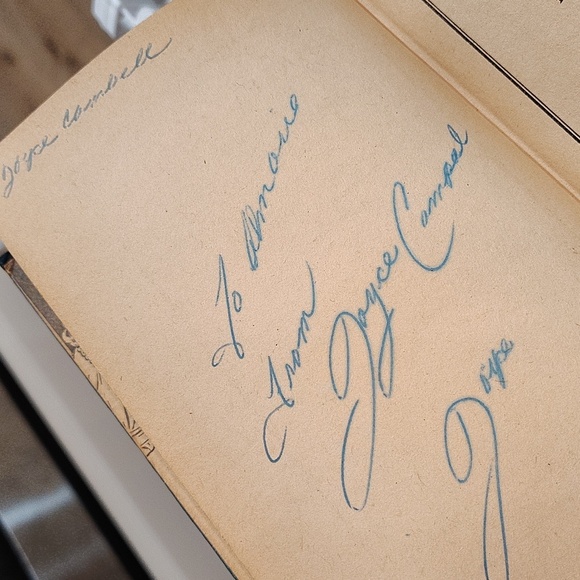 Joyce Combell
To
From
Joyce Campel
Joyce